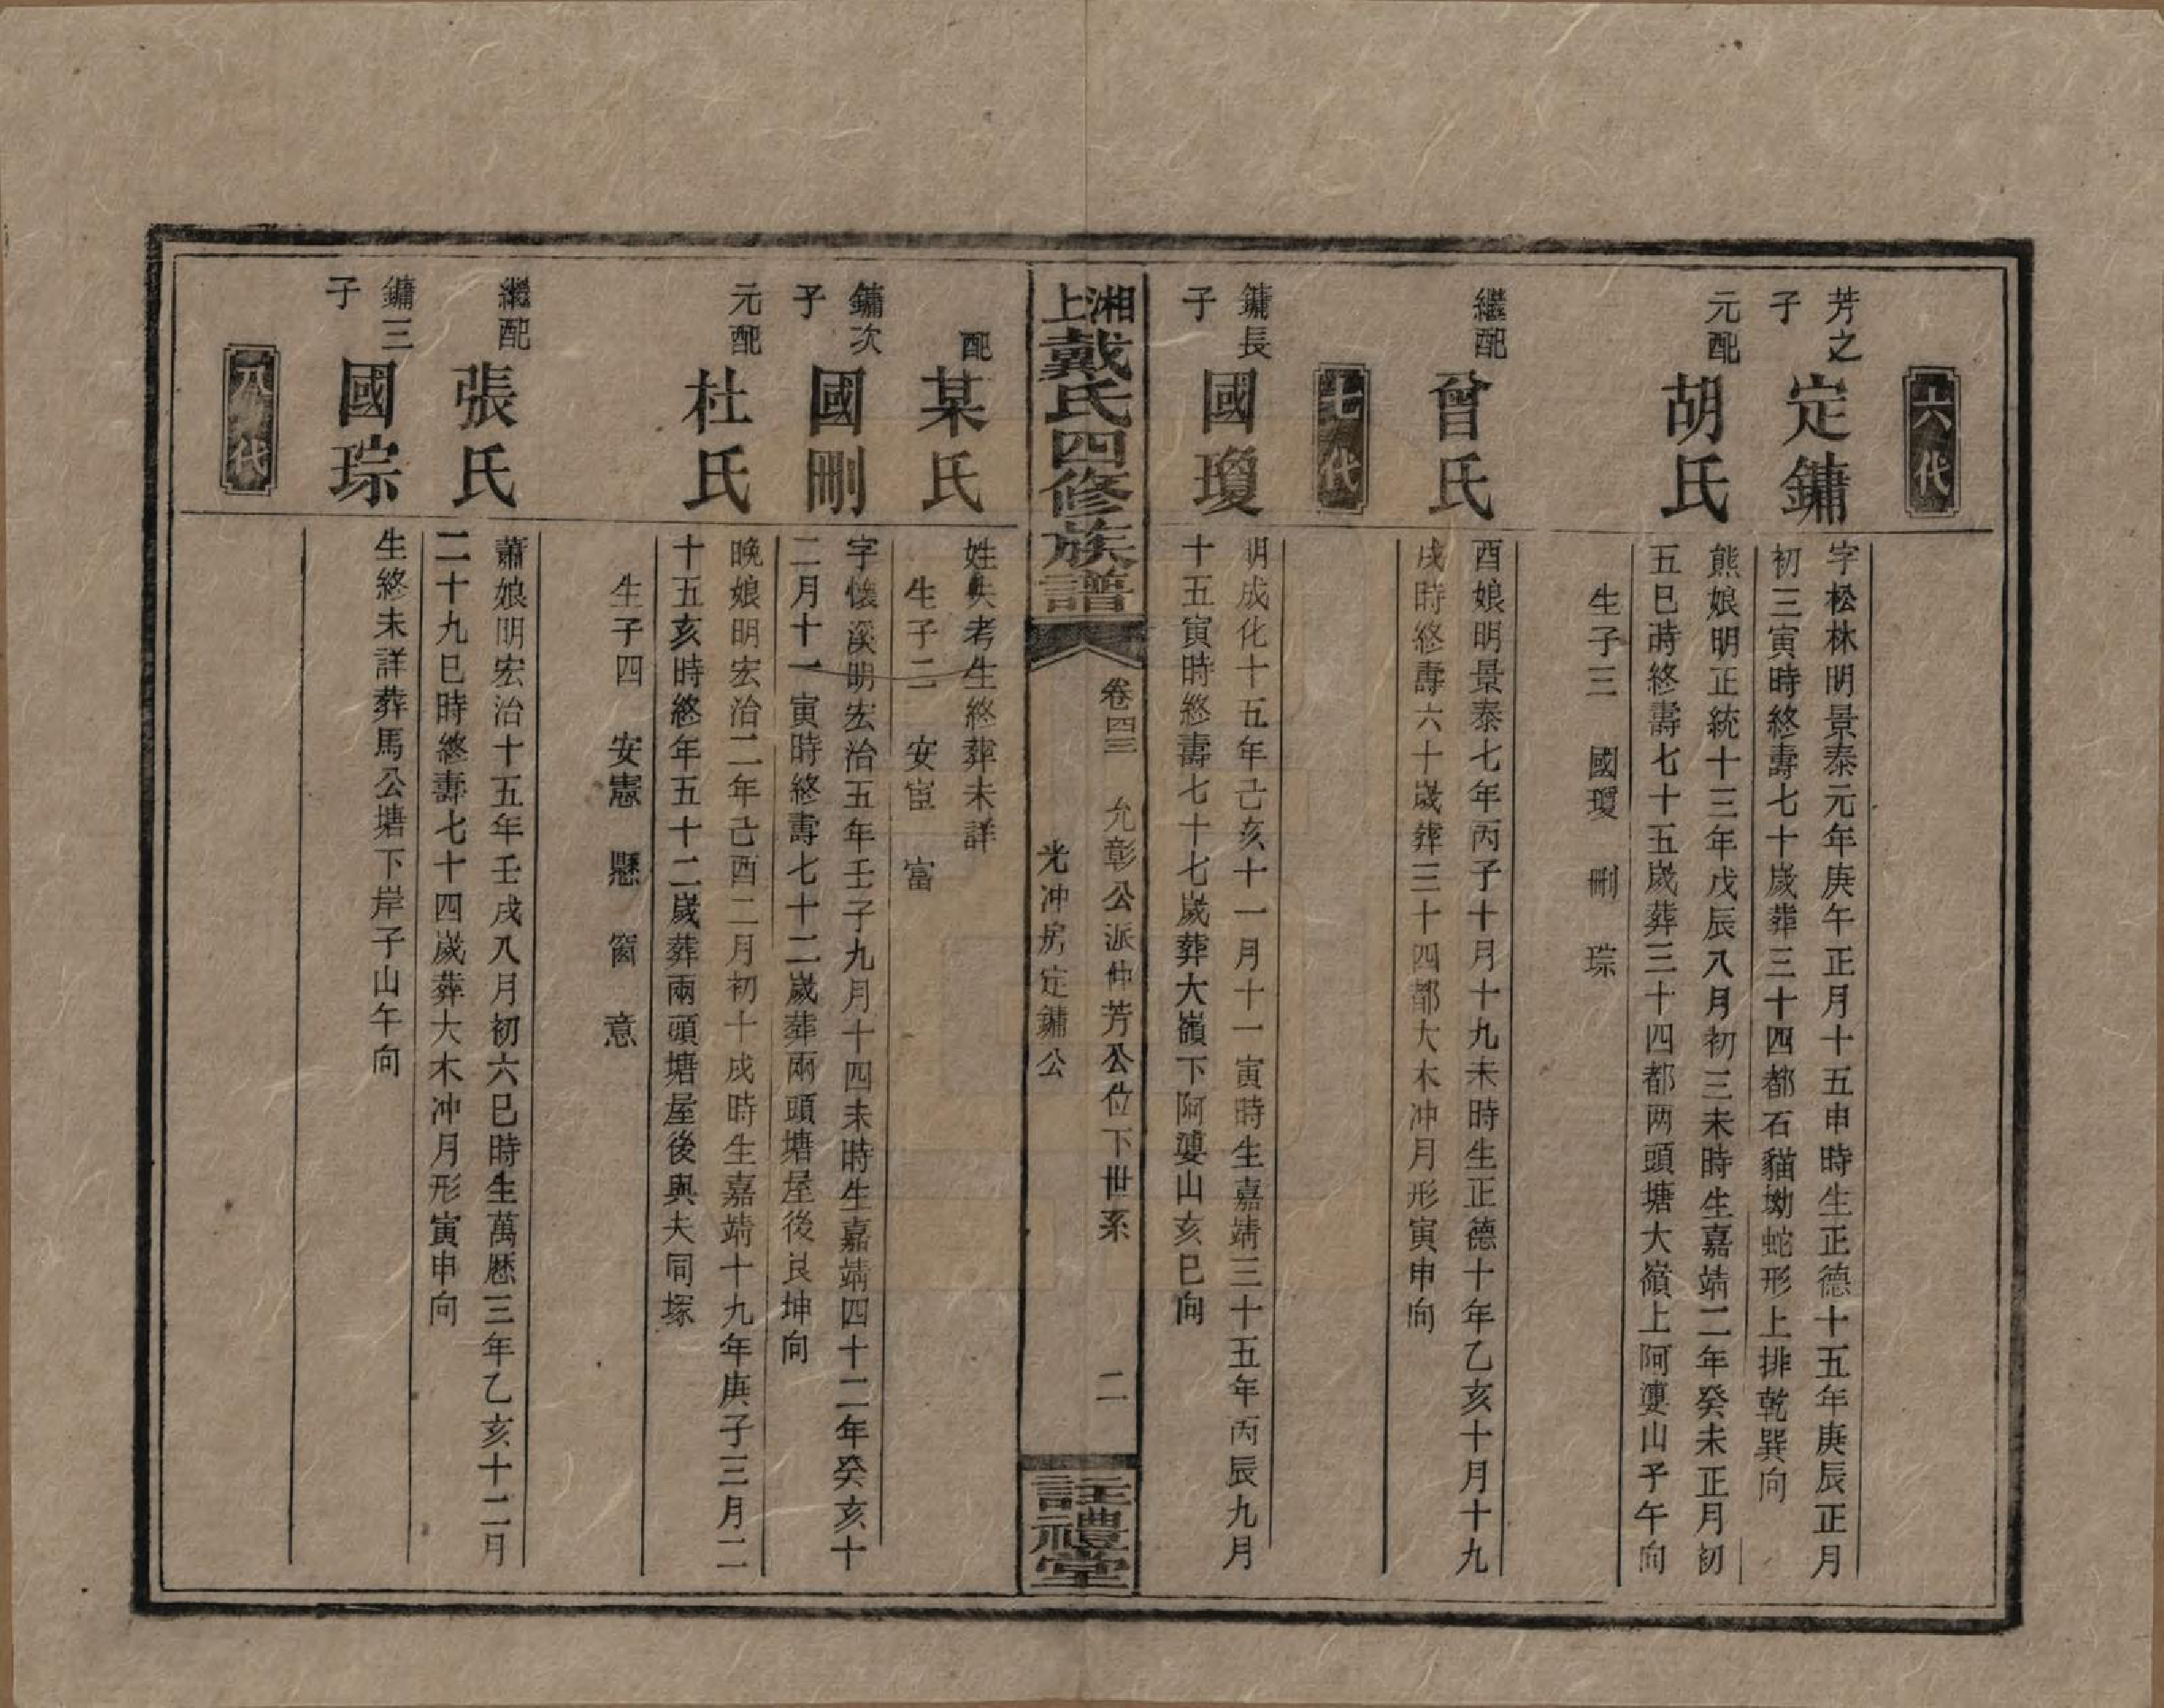 六代
芳之子
定鏞
字松林明景泰元年庚午正月十五申時生正德十五年庚辰正月
初三寅時終壽七十歲葬三十四都石貓坳蛇形上排乾巽向
元配
胡氏
熊娘明正統十三年戊辰八月初三未時生嘉靖二年癸未正月初
五巳時終壽七十五歲葬三十四都两頭塘大嶺上阿婆山子午向
生子三 國瓊 刪 琮
繼配
曾氏
酉娘明景泰七年丙子十月十九未時生正德十年乙亥十月十九
戌時終壽六十歲葬三十四都大木冲月形寅申向
七代
鏞長子
國瓊
明成化十五年己亥十一月十一寅時生嘉靖三十五年丙辰九月
十五寅時終壽七十七歲葬大嶺下阿婆山亥巳向
湘上戴氏四修族譜
卷四三 允彰公派仲芳公位下世系 二
光冲房定鏞公
註禮堂
配
某氏
姓失考生終葬未詳
生子二 安宦 富
鏞次子
國刪
字懷溪明宏治五年壬子九月十四未時生嘉靖四十二年癸亥十
二月十一寅時終壽七十二歲葬兩頭塘屋後艮坤向
元配
杜氏
晚娘明宏治二年己酉二月初十戌時生嘉靖十九年庚子三月二
十五亥時終年五十二歲葬兩頭塘屋後與夫同塚
生子四 安憲 懸 窗 意
繼配
張氏
蕭娘明宏治十五年壬戌八月初六巳時生萬歷三年乙亥十二月
二十九巳時終壽七十四歲葬大木冲月形寅申向
鏞三子
國琮
生終未詳葬馬公塘下岸子山午向
八代